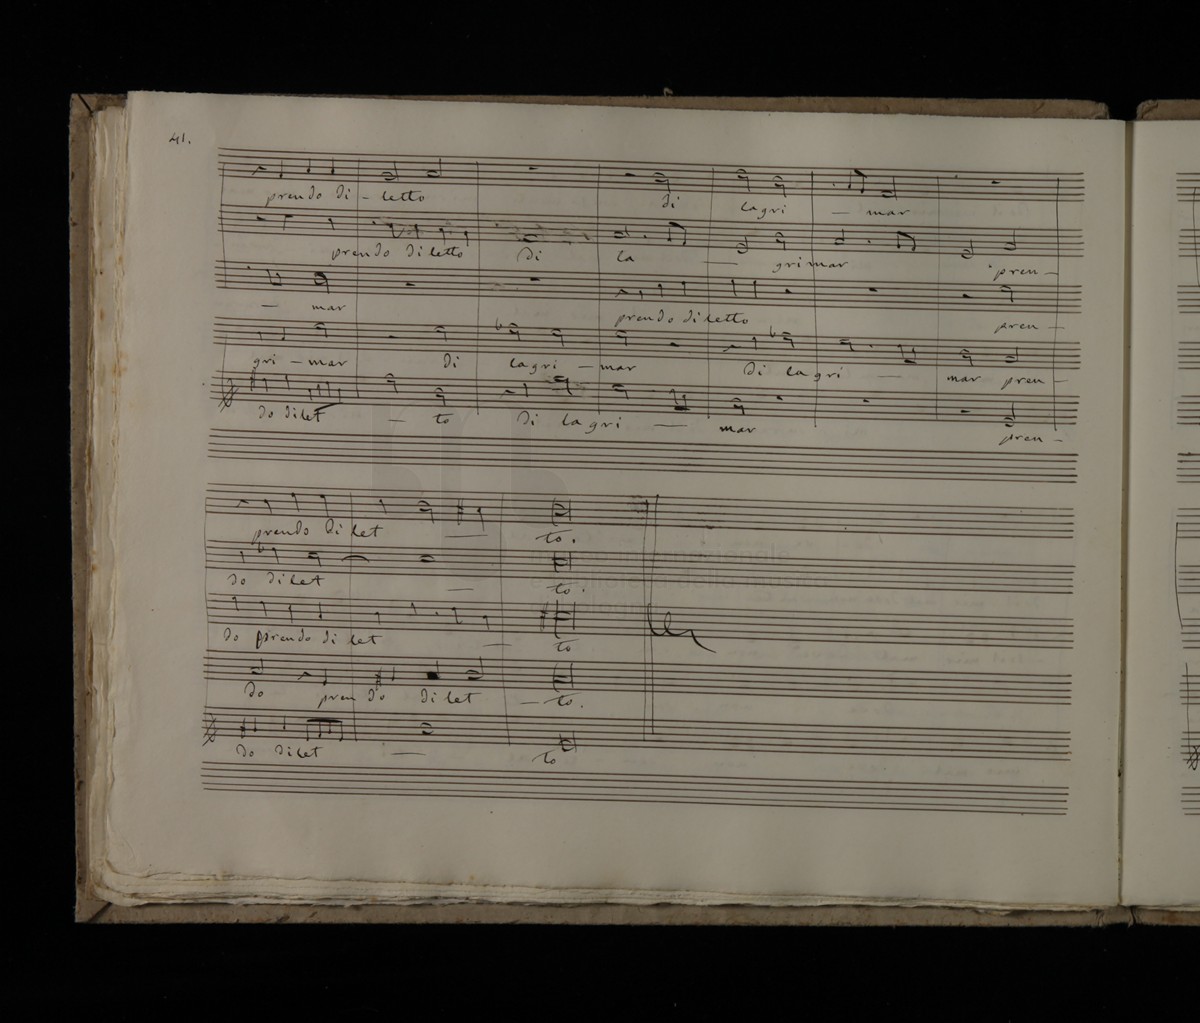 41.
prendo di - letto di lagri - mar
prendo diletto di la - grimar pren -
- mar prendo diletto pren -
gri - mar di lagri - mar di lagri - mar pren -
do dilet - to di lagri - mar pren -
prendo dilet - to.
do dilet - to.
do prendo dilet - to
do prendo dilet - to.
do dilet - to